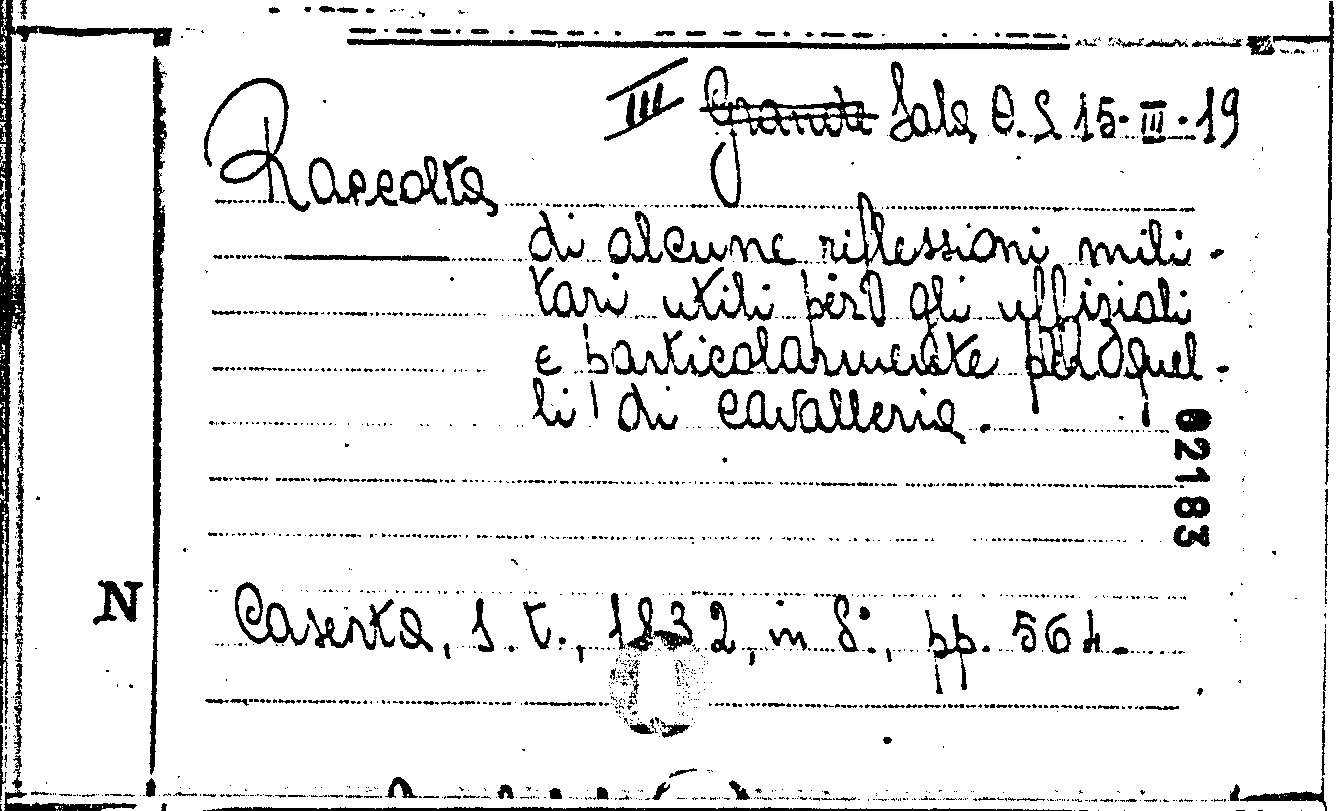 III Grande Sala C. S. 15-III-19
Raccolta
di alcune riflessioni mili-
tari utili per gli uffiziali
e particolarmente per quel-
li di cavalleria.
02183
N
Caserta, s. t., 1832, in 8°., pp. 564.